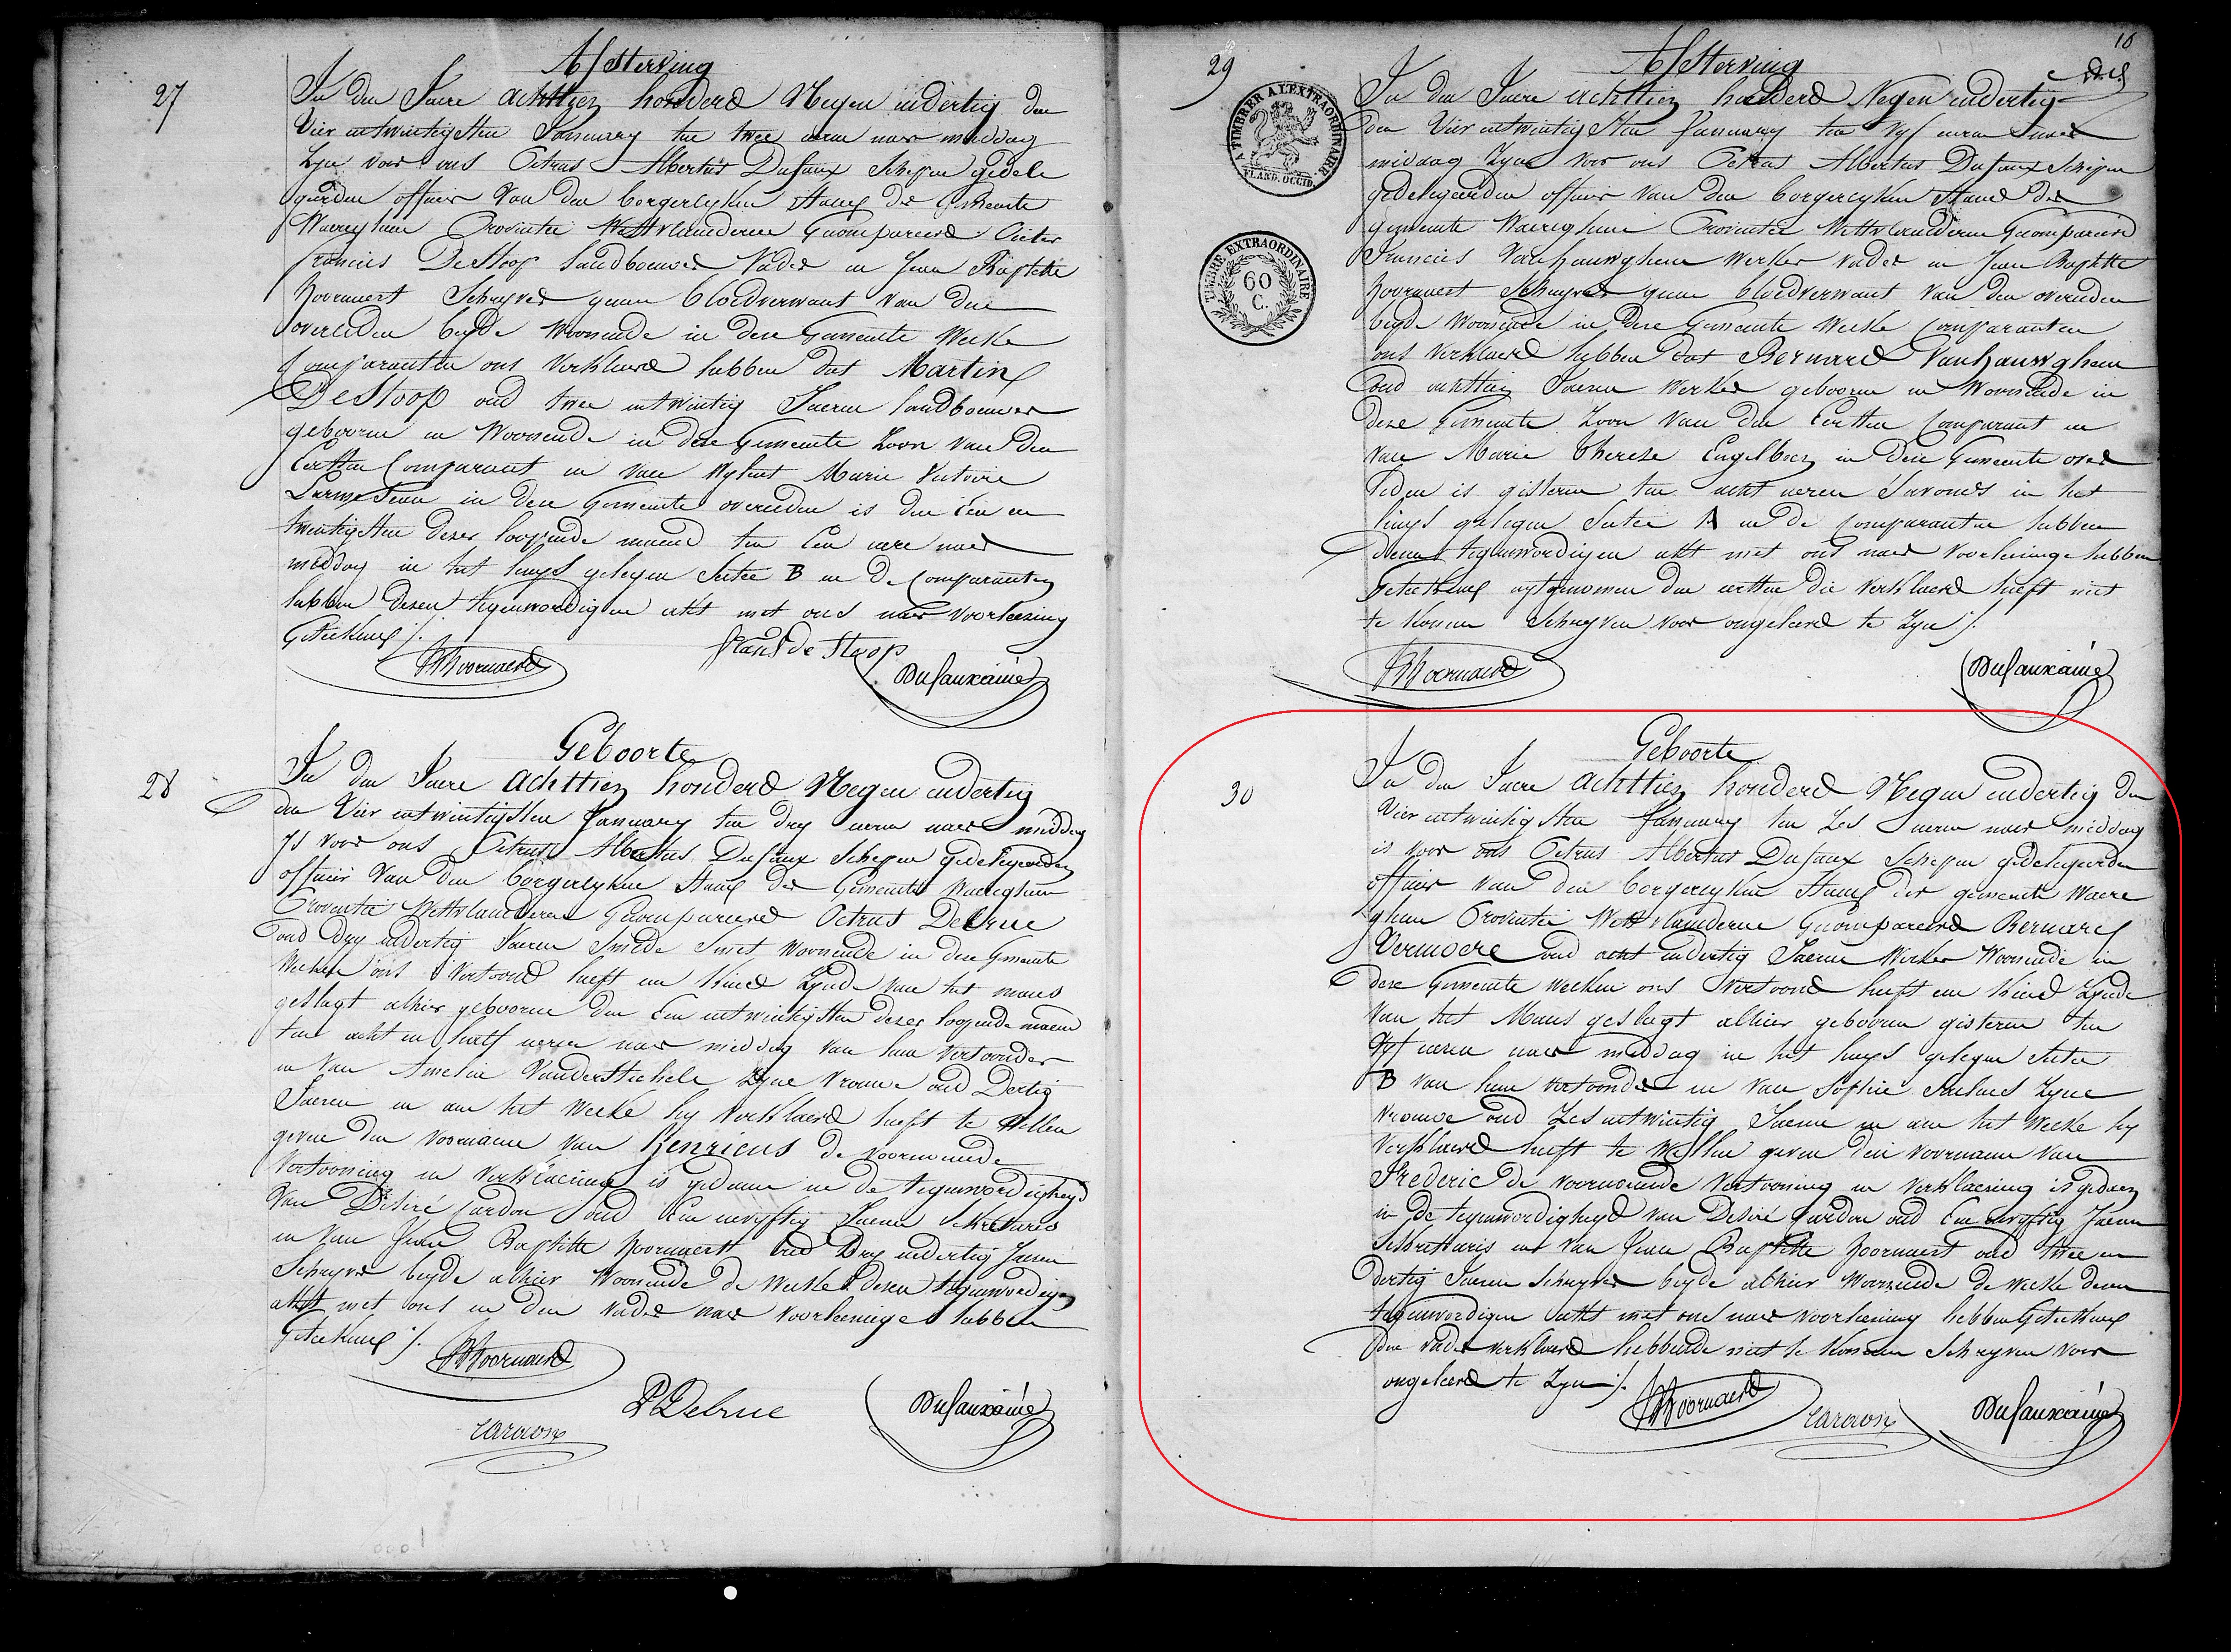 27
Afsterving
In den Jaere achttien honderd Negen endertig den
Vier entwintigsten January ten twee uren naer middag
Zyn voor ons Petrus Albertus Dufaux Schepen gedele
geerden officier Van den borgerlyken Staet der Gemeente
Waereghem Provintie Westvlaenderen Gecompareerd Pieter
francies DeStoop landbouwer Vader en Jean Baptiste
hoornaert Schryver geenen bloedverwant van den
overleden beyde Woonende in dese Gemeente Welke
Comparanten ons Verklaerd hebben dat Martin
DeStoop oud twee entwintig Jaeren landbouwer
gebooren en Woonende in dese Gemeente Zoon van den
Eersten Comparant en van Wylent Marie Victoire
in dese Gemeente overleden is den Een en
twintigsten deser loopende maend ten Een ure naer
middag in het huys gelegen Sectie B en de Comparanten
hebben desen tegenwordigen akt met ons naer Voorleesing
Geteekend ./.
Hoornaert
frans de Stoop
Dufaux ainé
28
Geboorte
In den Jaere achttien honderd Negen endertig
den Vier entwintigsten January ten dry uren naer middag
Is voor ons Petrus Albertus Dufaux Schepen Gedelegeerden
officier Van den borgerlyken Staet der Gemeente Waereghem
Provintie Westvlaenderen Gecompareerd Petrus Debrue
oud dry endertig Jaeren Smet Woonende in dese Gemeente
Welken ons Vertoond heeft een Kind Zynde van het mans
geslagt alhier gebooren den Een entwintigsten deser loopende maend
ten acht en half uren naer middag van hem Vertoonder
en Van Amelie Vanderstichele Zyne Vrouwe oud Dertig
Jaeren en aen het Welke hy Verklaerd heeft te Willen
geven den Voornaem van Henricus de voornoemde
Vertooning en Verklaering is gedaen in de tegenwordigheyd
Van Désiré Cardon oud Een envyftig Jaeren Sekretaris
en Van Jean Baptiste hoornaert oud Dry endertig Jaeren
Schryver beyde alhier Woonende de Welke desen tegenwordigen
akt met ons en den Vader naer Voorleesinge hebben
Geteekend ./.
Hoornaert
P Debrue
Cardon
Dufaux ainé
16
29
A TIMBER A L'EXTRAORDINAIRE.
FLAND. OCCID.
TIMBRE EXTRAORDINAIRE
60
C.
Afsterving
In den Jaere achttien honderd Negen endertig
den Vier entwintigsten January ten Vyf uren naer
middag Zyn voor ons Petrus Albertus Dufaux Schepen
gedelegeerden officier Van den borgerlyken Staet der
gemeente Waereghem Provintie Westvlaenderen Gecompareerd
Francies Vanhauwghem Werker Vader en Jean Baptiste
hoornaert Schryver geenen bloedverwant Van den overleden
beyde Woonende in dese Gemeente Welke Comparanten
ons Verklaerd hebben dat Bernard Vanhauwghem
oud achttien Jaeren Werker gebooren en Woonende in
dese Gemeente Zoon Van den Eersten Comparant en
van Marie Therese Engelbeen in dese Gemeente over
leden is gisteren ten acht uren S'avonds in het
huys gelegen Sectie A en de Comparanten hebben
desen tegenwordigen akt met ons naer Voorleesinge hebben
Geteekend uytgenomen den eersten die Verklaerd heeft niet
te konnen Schryven voor ongeleerd te Zyn ./.
Hoornaert
Dufaux ainé
30
Geboorte
In den Jaere achttien honderd Negen endertig den
Vier entwintigsten January ten Zes uren naer middag
is voor ons Petrus Albertus Dufaux Schepen gedelegeerden
officier van den borgerlyken Staet der gemeente Waere
ghem Provintie Westvlaenderen Gecompareerd Bernard
Vermoere oud acht endertig Jaeren Werker Woonende in
dese Gemeente Welken ons Vertoond heeft een Kind Zynde
Van het Mans geslagt alhier gebooren gisteren ten
Vyf uren naer middag in het huys gelegen Sectie
B van hem vertoonder en van Sophie Zyne
Vrouwe oud Zes entwintig Jaeren en aen het Welke hy
Verklaerd heeft te Willen geven den voornaem van
Frederic de voornoemde Vertooning en Verklaering is gedaen
in de tegenwordigheyd van Désiré Cardon oud Een envyftig Jaeren
Sekretaris en Van Jean Baptiste hoornaert oud twee en
dertig Jaeren Schryver beyde alhier Woonende de Welke desen
tegenwordigen akt met ons naer voorleesing hebben Geteekend
den Vader verklaerd hebbende niet te konnen Schryven voor
ongeleerd te Zyn ./.
Hoornaert
Cardon
Dufaux ainé